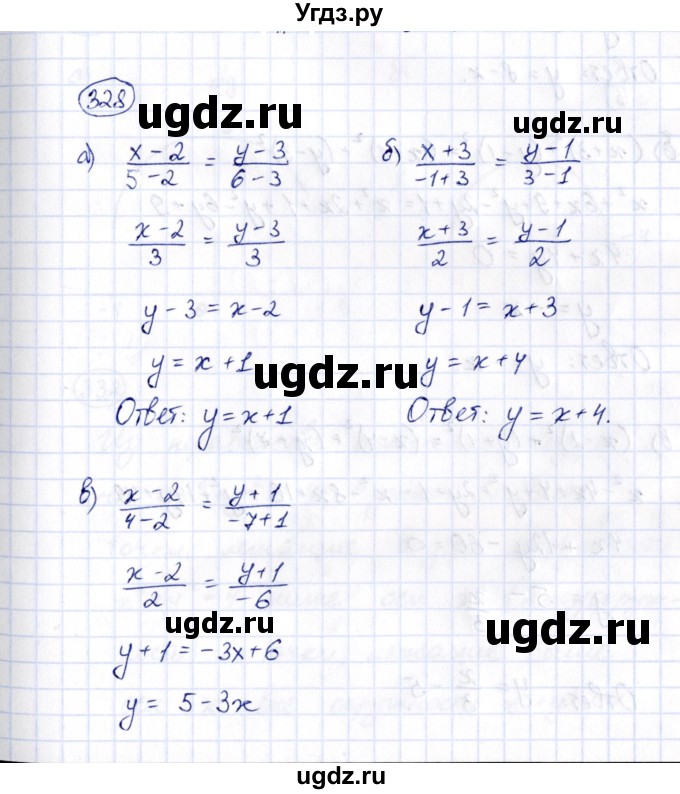 Угдз.ру
328
ugdz.ru
а) (x-2)/(5-2) = (y-3)/(6-3) б) (x+3)/(-1+3) = (y-1)/(3-1)
ugdz.ru
(x-2)/3 = (y-3)/3 (x+3)/2 = (y-1)/2
y-3 = x-2 y-1 = x+3
y = x+1 y = x+4
ugdz.ru
Ответ: y = x+1 Ответ: y = x+4.
в) (x-2)/(4-2) = (y+1)/(-7+1)
(x-2)/2 = (y+1)/-6
ugdz.ru
ugdz.ru
y+1 = -3x+6
y = 5-3x
ugdz.ru